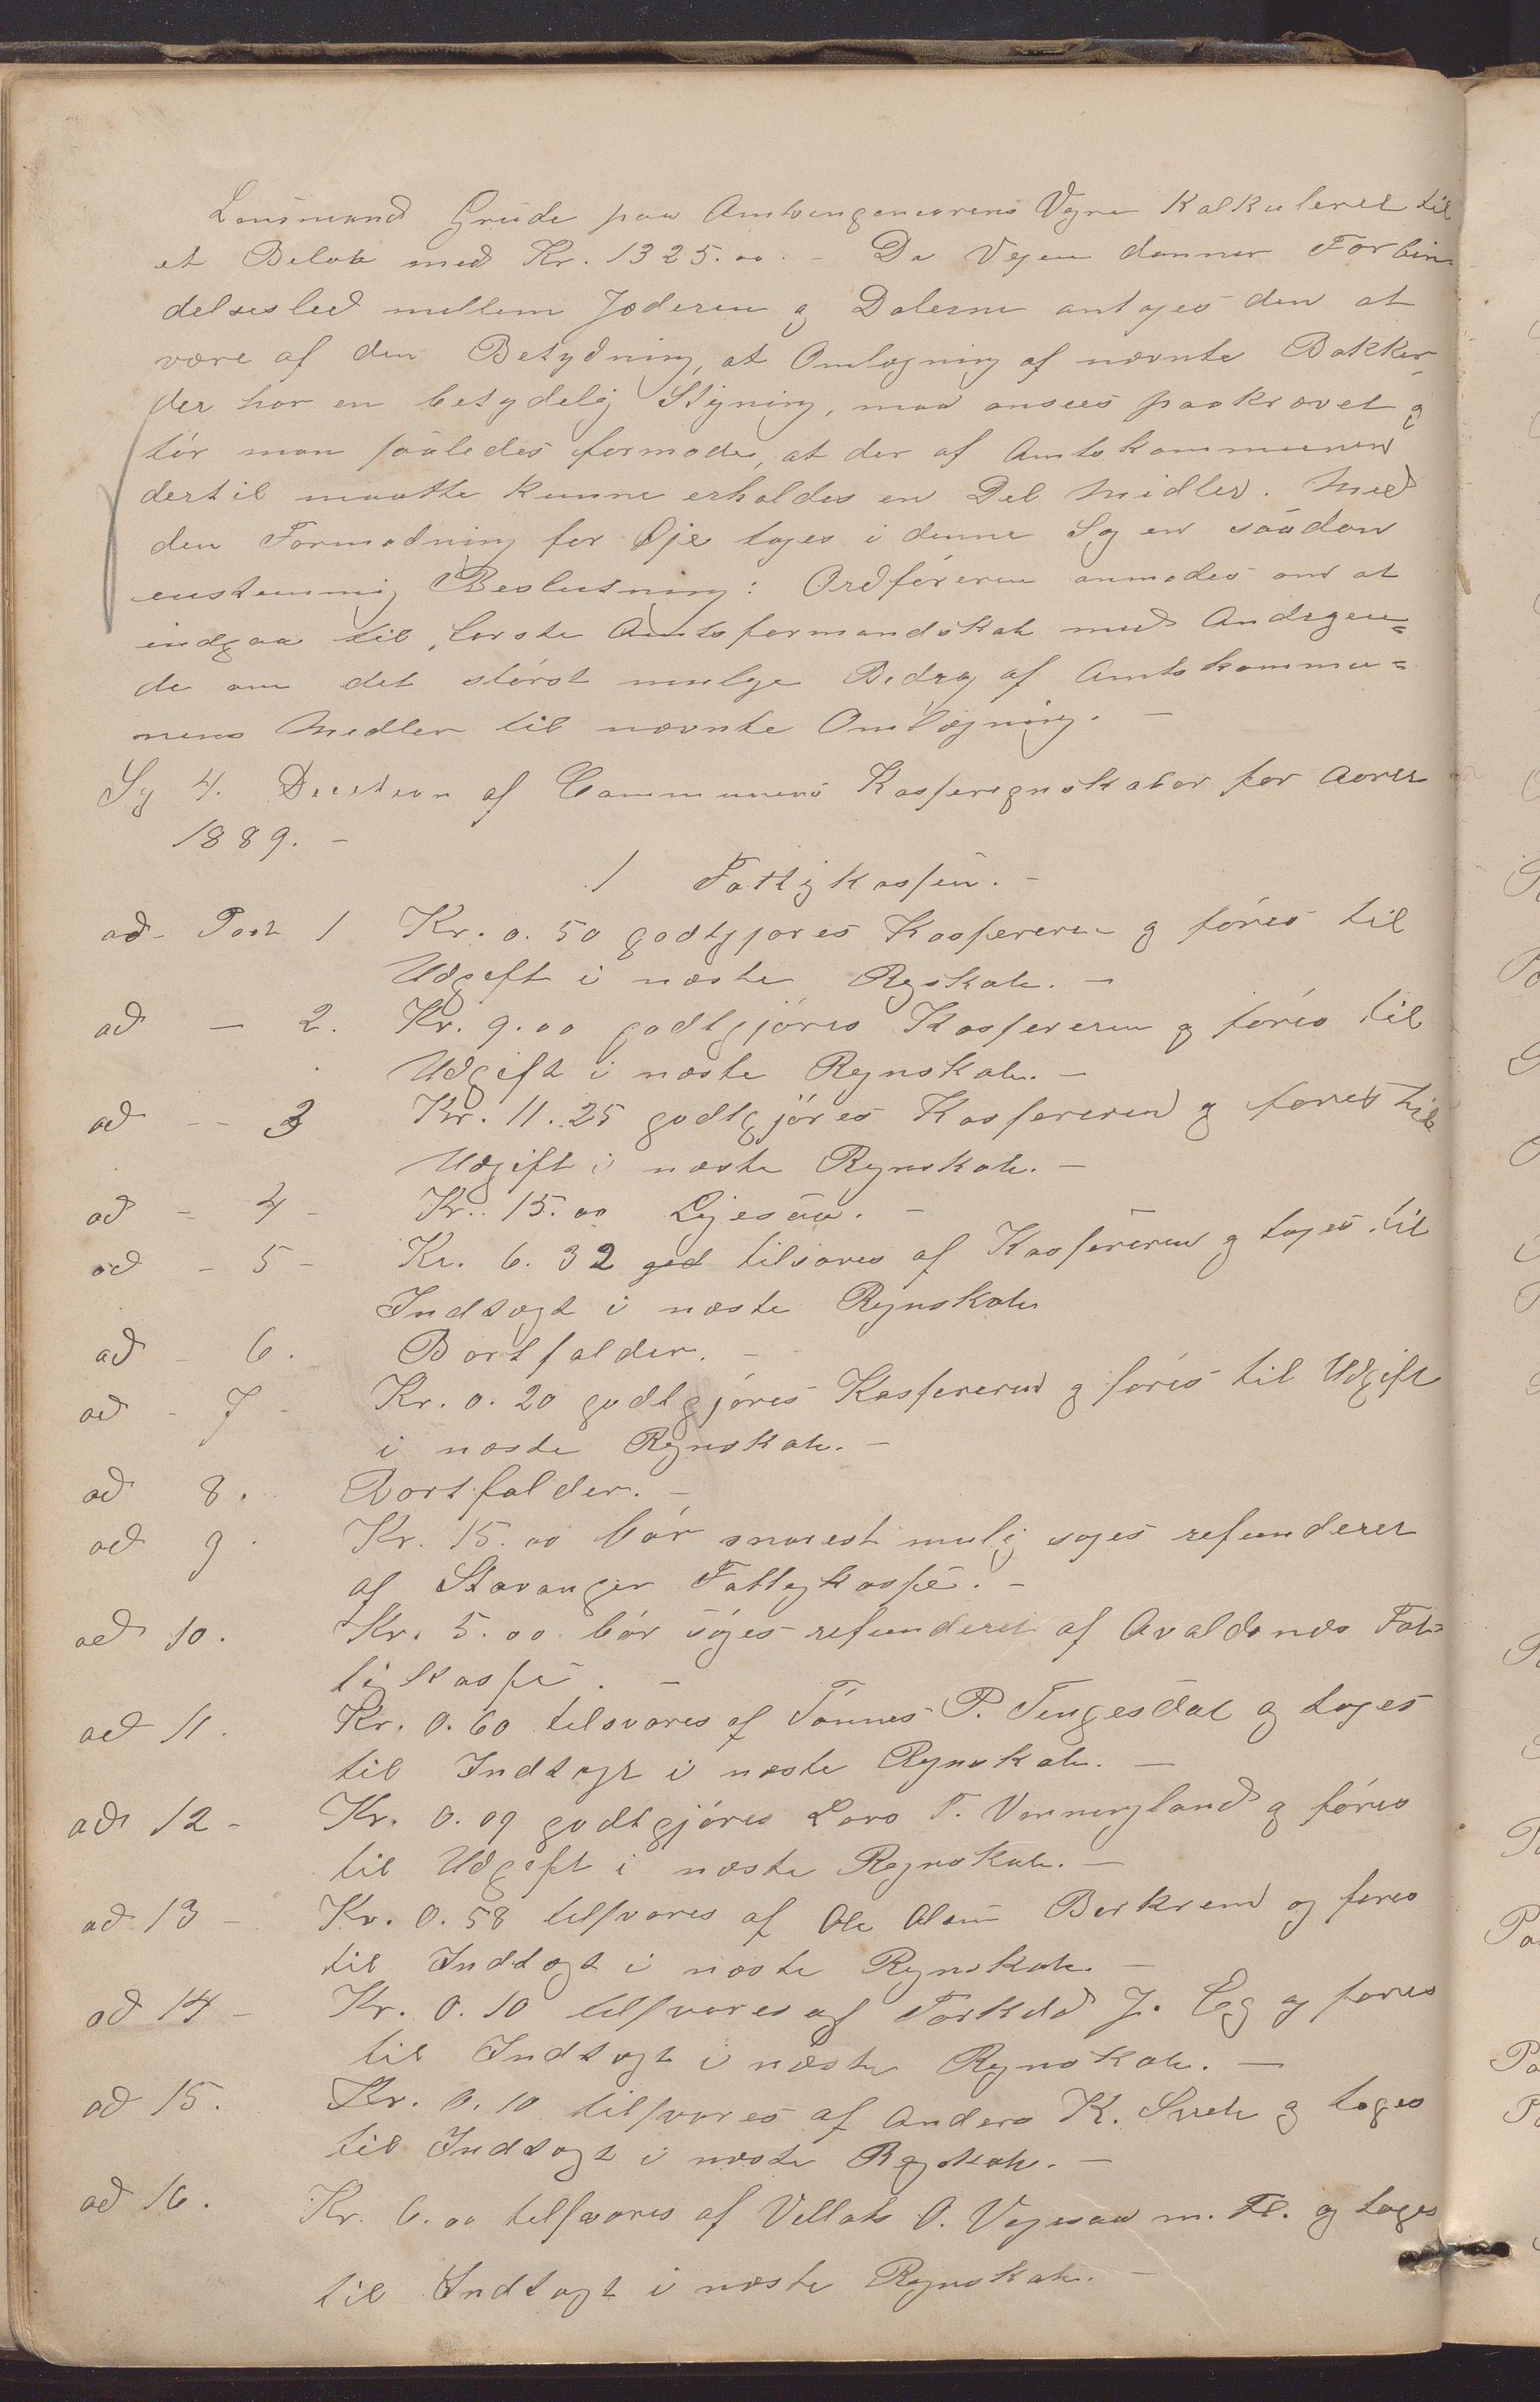 Lensmand Grude paa Amtsingeneørens Vegne Kalkuleret til
et Beløb med Kr. 1325.00. - Da Vejen danner Forbin-
delsesled mellem Jæderen og Dalerne antages den at
være af den Betydning, at Omlægning af nævnte Bakker,
der har en betydelig Stigning, maa ansees paakrævet og
tør man saaledes formode, at der af Amtskommunen
dertil maatte kunne erholdes en Del Midler. Med
den Formodning for Øje toges i denne Sag en saadan
enstemmig Beslutning: Ordføreren anmodes om at
indgaa til første Amtsformandskab med Andragen=
de om det størst mulige Bidrag af Amtskommu=
nens Midler til nævnte Omlægning. -
Sag 4. Decision af Communens Kasseregnskaber for Aaret
1889. -
1 Fattigkassen. -
ad - Post 1 Kr. 0.50 godtgjøres Kassereren og føres til
Udgift i næste Regskab. -
ad - 2. Kr. 9.00 godtgjøres Kassereren og føres til
Udgift i næste Regnskab. -
ad - - 3 Kr. 11.25 godtgjøres Kassereren og føres til
Udgift i næste Regnskab. -
ad - 4 - Kr. 15.00 Ligesaa. -
ad - 5 - Kr. 6.32 god tilsvares af Kassereren og tages til
Indtægt i næste Regnskab
ad - 6. Bortfalder. -
ad - 7 - Kr. 0.20 godtgjøres Kassereren og føres til Udgift
i næste Regnskab. -
ad 8. Bortfalder. -
ad 9. Kr. 15.00 bør snarest mulig søges refunderet
af Stavanger Fattigkasse. -
ad 10. Kr. 5.00 bør søges refunderet af Avaldsnes Fat-
tigkasse. -
ad 11. Kr. 0.60 tilsvares af Tønnes P. Tengesdal og tages
til Indtægt i næste Regnskab. -
ad 12 - Kr. 0.09 godtgjøres Lars T. Vanningland og føres
til Udgift i næste Regnskab. -
ad 13 - Kr. 0.58 tilsvares af Ole Berkrem og føres
til Indtægt i næste Regnskab. -
ad 14 - Kr. 0.10 tilsvares af Torkild J. Eg og føres
til Indtægt i næste Regnskab. -
ad 15. Kr. 0.10 tilsvares af Anders K. og tages
til Indtægt i næste Regskab. -
ad 16. Kr. 6.00 tilsvares af O. Vejesaa m. Fl. og tages
til Indtægt i næste Regnskab. -